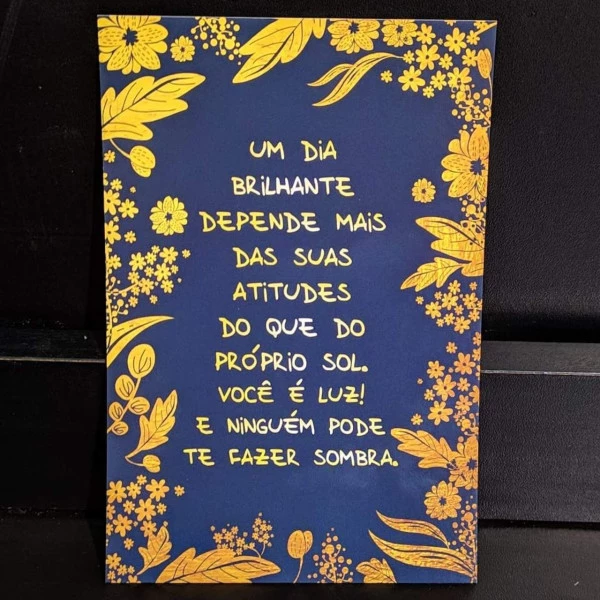 UM DIA
BRILHANTE
DEPENDE MAIS
DAS SUAS
ATITUDES
DO QUE DO
PRÓPRIO SOL.
VOCÊ É LUZ!
E NINGUÉM PODE
TE FAZER SOMBRA.